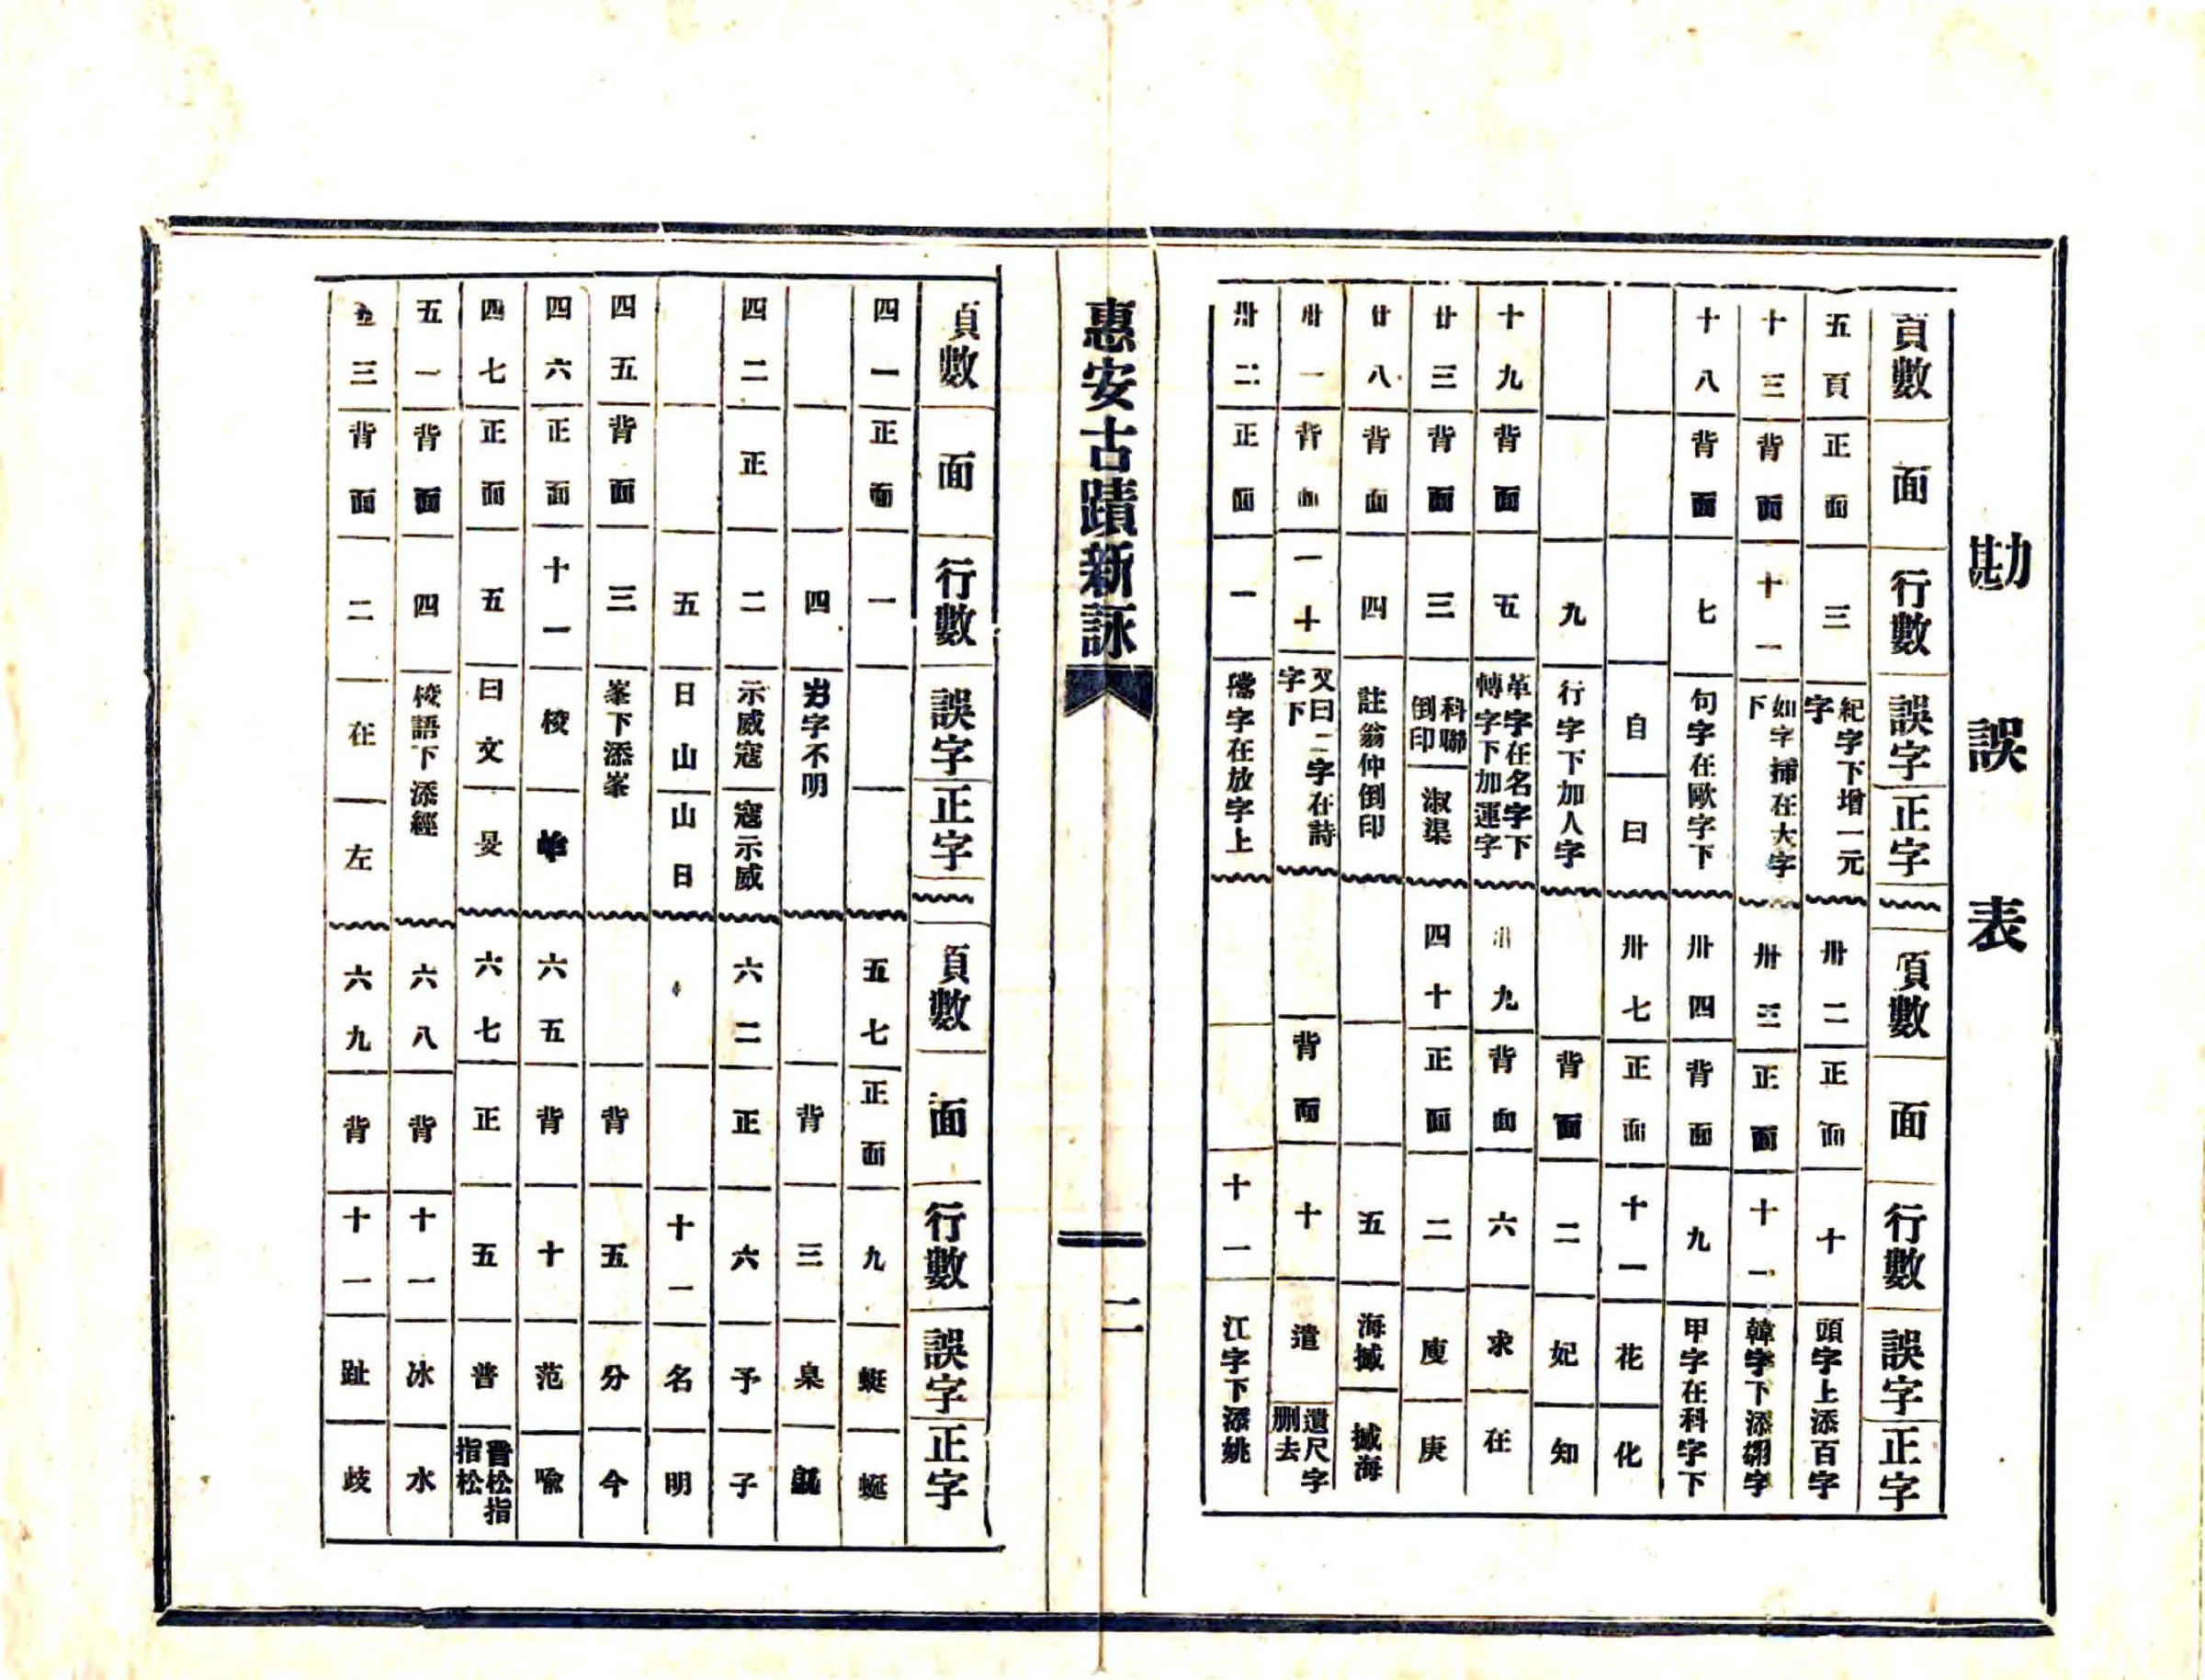 勘誤表
頁數 面 行數 誤字 正字 頁數 面 行數 誤字 正字
五頁 正面 三 紀字下增一元字 卅二 正面 十 頭字上添百字
十三 背面 十一 如字掃在大字下 卅三 正面 十一 韓字下添翃字
十八 背面 七 句字在歐字下 卅四 背面 九 甲字在科字下
自 曰 卅七 正面 十一 花 化
九 行字下加人字 背面 二 妃 知
十九 背面 五 革字在名字下轉字下加運字 卅九 背面 六 求 在
廿三 背面 三 科聯倒印 淑渠 四十 正面 二 庾 庚
廿八 背面 四 註翁仲倒印 五 海撼 撼海
卅一 背面 一十 又曰二字在詩字下 背面 十 遣 遺尺字刪去
卅二 正面 一 字在放字上 十一 江字下添姚
惠安古蹟新詠
二
頁數 面 行數 誤字 正字 頁數 面 行數 誤字 正字
四一 正面 一 五七 正面 九 蜓 蜒
四 字不明 背 三 臬
四二 正 二 示威寇 寇示威 六二 正 六 予 子
五 日山 山日 十一 名 明
四五 背面 三 峯下添峯 背 五 分 今
四六 正面 十一 稜 六五 背 十 范 喩
四七 正面 五 日文 旻 六七 正 五 普 晉松指指松
五一 背面 四 稜語下添經 六八 背 十一 冰 水
五三 背面 二 在 左 六九 背 十一 趾 歧